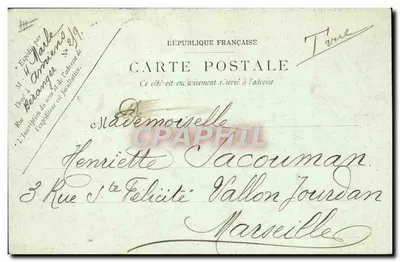 RÉPUBLIQUE FRANÇAISE
CARTE POSTALE
Ce côté est exclusivement réservé à l'adresse
Expédié par
M
Marle
Amiens
Rue Béranger No 219
L'inscription du nom et de l'adresse de
l'expéditeur est facultative.
T vue
Mademoiselle
CPAPHIL
Henriette Jacouman
3 Rue Ste Félicité Vallon Jourdan
Marseille